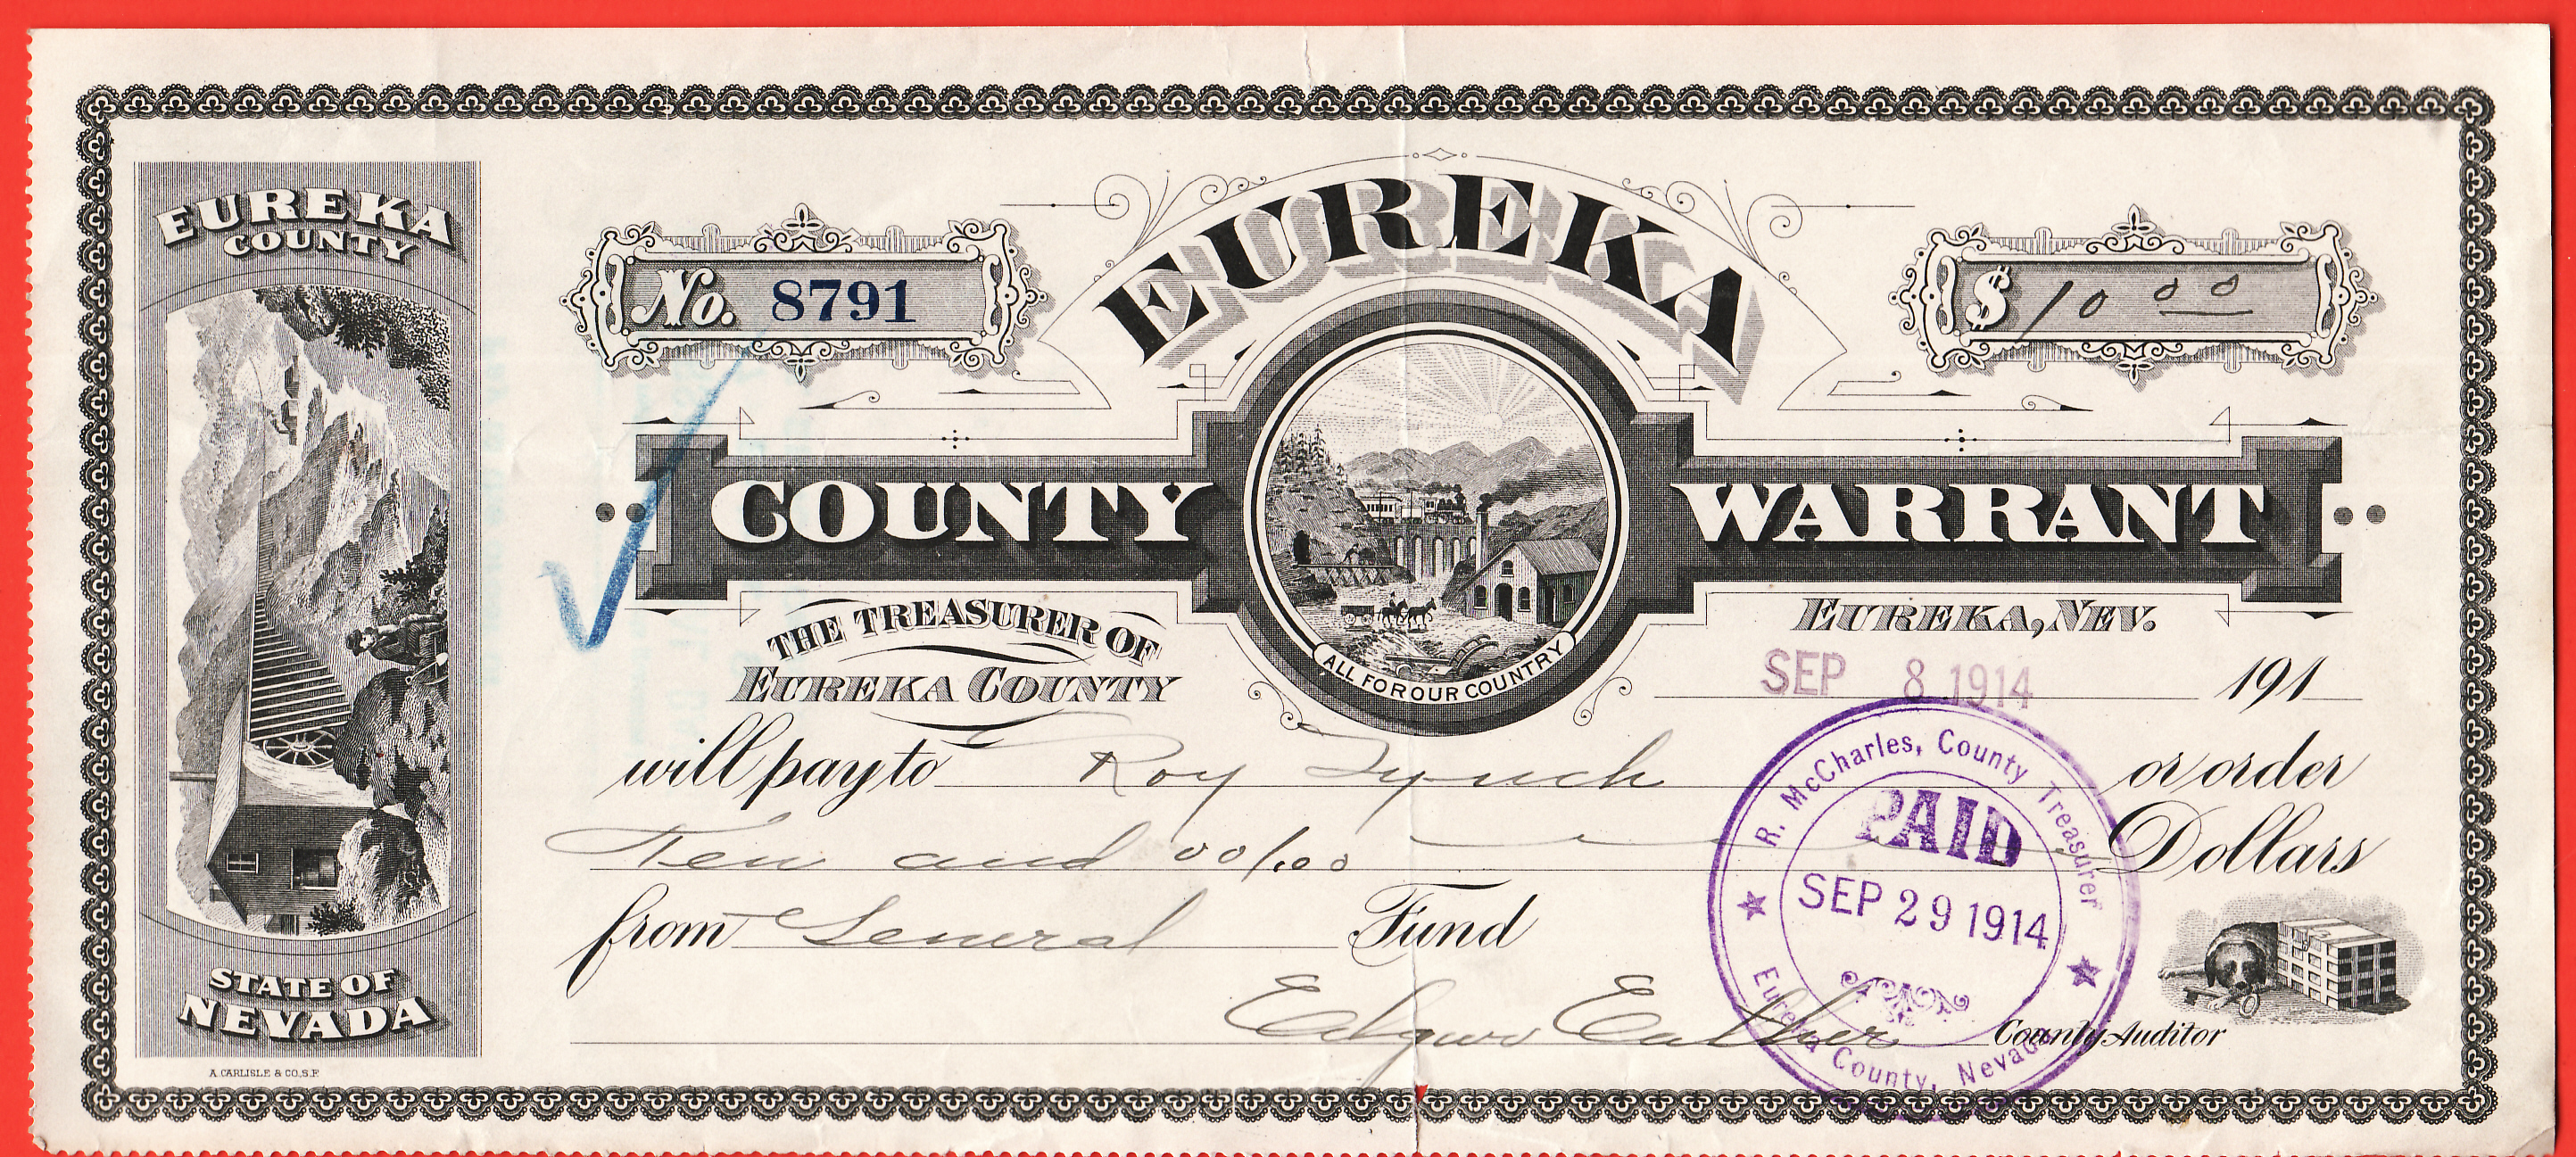 EUREKA
COUNTY
STATE OF
NEVADA
A. CARLISLE & CO., S.F.
No. 8791
EUREKA
$ 10 00
COUNTY WARRANT
ALL FOR OUR COUNTRY
THE TREASURER OF
EUREKA COUNTY
EUREKA, NEV.
SEP 8 1914 191
will pay to Roy Lynch or order
Ten and 00/00 Dollars
from General Fund
Edgar Eather County Auditor
R. McCharles, County Treasurer
PAID
SEP 29 1914
Eureka County, Nevada